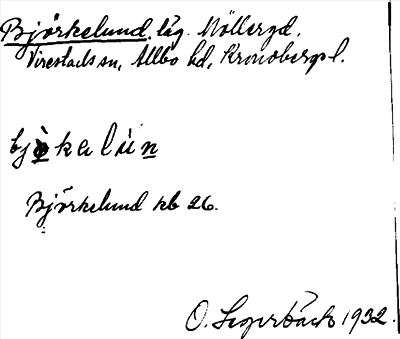 Björkelund, läg. Möllergd.
Virestads sn, Allbo hd, Kronobergs l.
björkelun
Björkelund kb 26.
O. Segerbäck 1932.